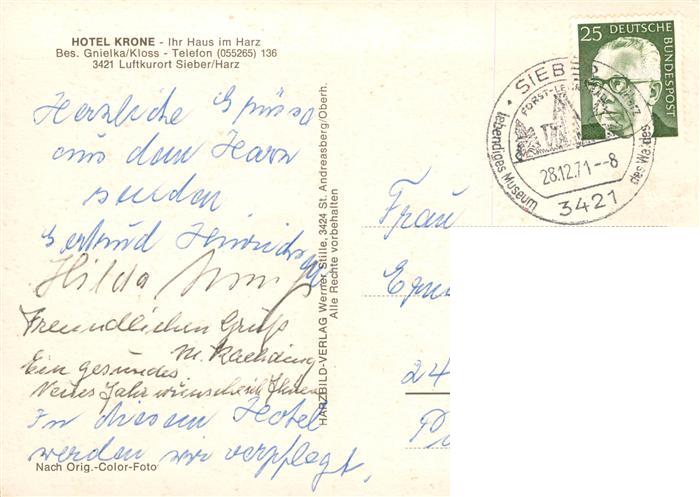 HOTEL KRONE - Ihr Haus im Harz
Bes. Gnielka/Kloss - Telefon (055265) 136
3421 Luftkurort Sieber/Harz
Herzliche Grüsse
aus dem Harz
senden
Gertrud Hinrichs
Hilda
Freundlichen Gruß
Ein gesundes
Neues Jahr wünscht Ihnen
In diesem Hotel
werden wir verpflegt.
Nach Orig.-Color-Foto
HARZBILD-VERLAG Werner Stille, 3424 St. Andreasberg/Oberh.
Alle Rechte vorbehalten
25 DEUTSCHE BUNDESPOST
SIEBER
lebendiges Museum des Waldes
28.12.71--8
3421
Frau
24